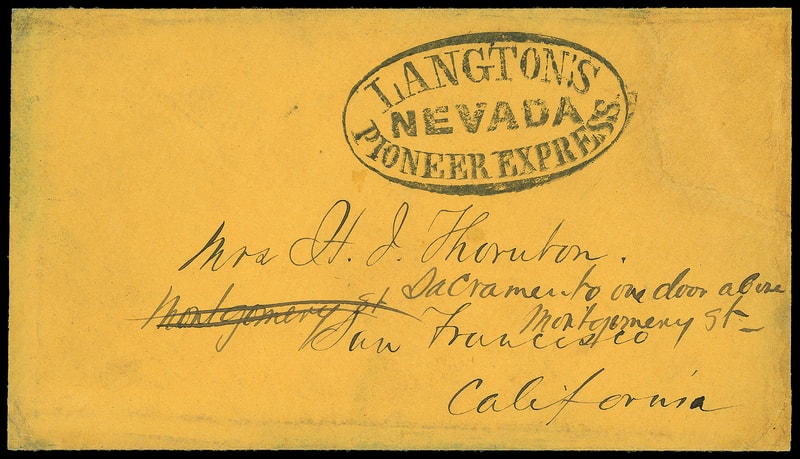 LANGTON'S
NEVADA
PIONEER EXPRESS.
Mrs H. I. Thornton.
Montgomery St Sacramento one door above
Montgomery St
San Francisco
California